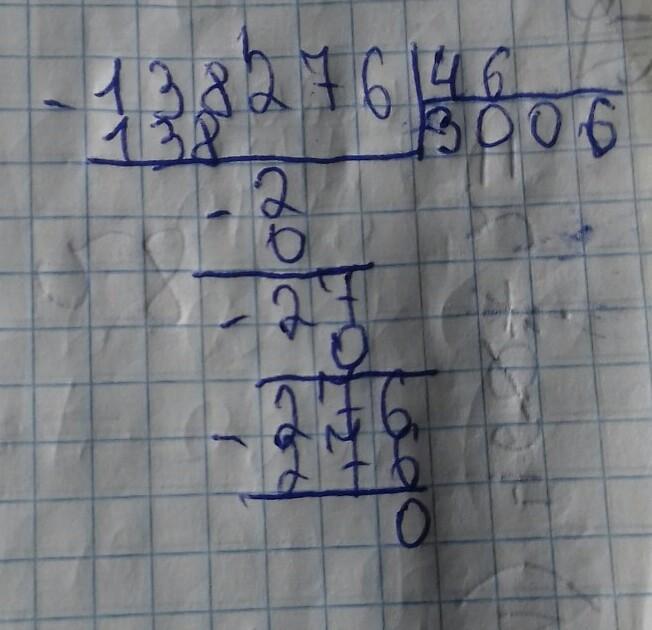 - 138276 | 46
138 | 3006
- 2
0
- 27
0
- 276
276
0